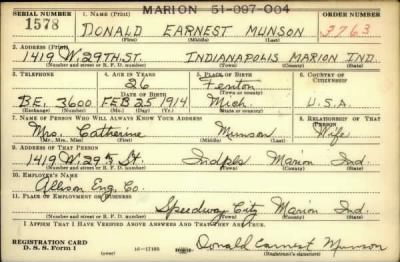 MARION 51-097-004
SERIAL NUMBER 1. NAME (Print) ORDER NUMBER
1578 DONALD EARNEST MUNSON 3763
(First) (Middle) (Last)
2. ADDRESS (Print)
1419 W. 29TH. ST. INDIANAPOLIS MARION IND.
(Number and street or R. F. D. number) (Town) (County) (State)
3. TELEPHONE 4. AGE IN YEARS 5. PLACE OF BIRTH 6. COUNTRY OF CITIZENSHIP
26 Fenton
DATE OF BIRTH (Town or county)
BE. 3600 FEB 25 1914 Mich. U.S.A.
(Exchange) (Number) (Mo.) (Day) (Yr.) (State or country)
7. NAME OF PERSON WHO WILL ALWAYS KNOW YOUR ADDRESS 8. RELATIONSHIP OF THAT PERSON
Mrs. Catherine Munson Wife
(Mr., Mrs., Miss) (First) (Middle) (Last)
9. ADDRESS OF THAT PERSON
1419 W. 29th St. Indpls Marion Ind.
(Number and street or R. F. D. number) (Town) (County) (State)
10. EMPLOYER'S NAME
Allison Eng. Co.
11. PLACE OF EMPLOYMENT OR BUSINESS
Speedway City Marion Ind.
(Number and street or R. F. D. number) (Town) (County) (State)
I AFFIRM THAT I HAVE VERIFIED ABOVE ANSWERS AND THAT THEY ARE TRUE.
REGISTRATION CARD
D. S. S. Form 1 16-17105 Donald Earnest Munson
(Registrant's signature)